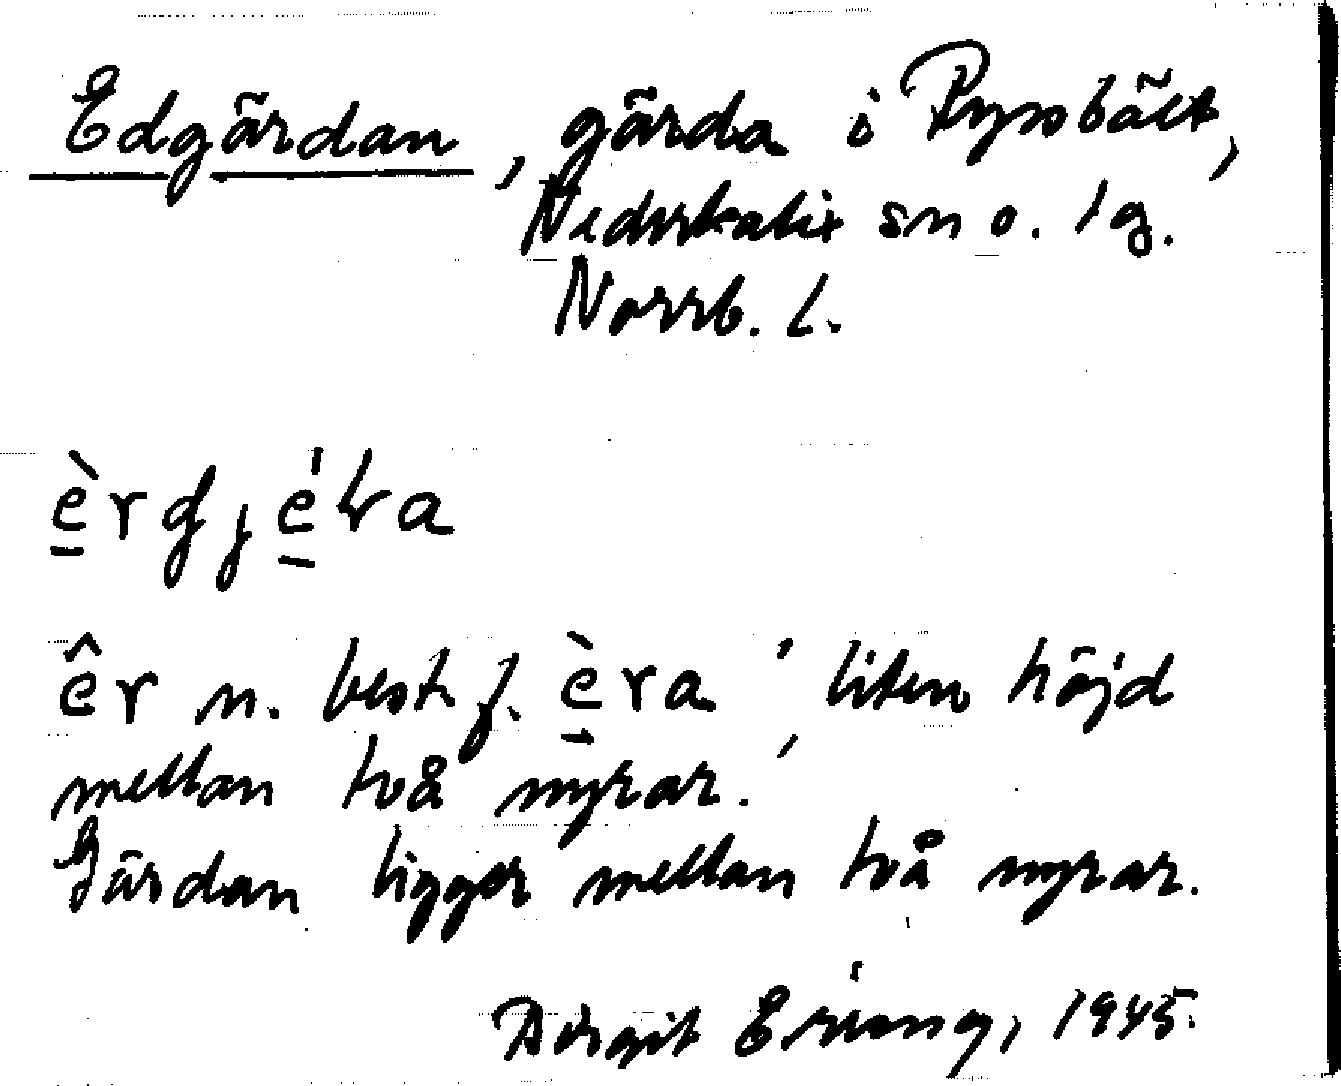 Edgärdan, gärda i Ryssbält,
Nederkalix sn o. lg.
Norrb. l.
êr n. best. f. èra ' liten höjd
mellan två myrar.'
Gärdan ligger mellan två myrar.
Birgit Ering, 1945.